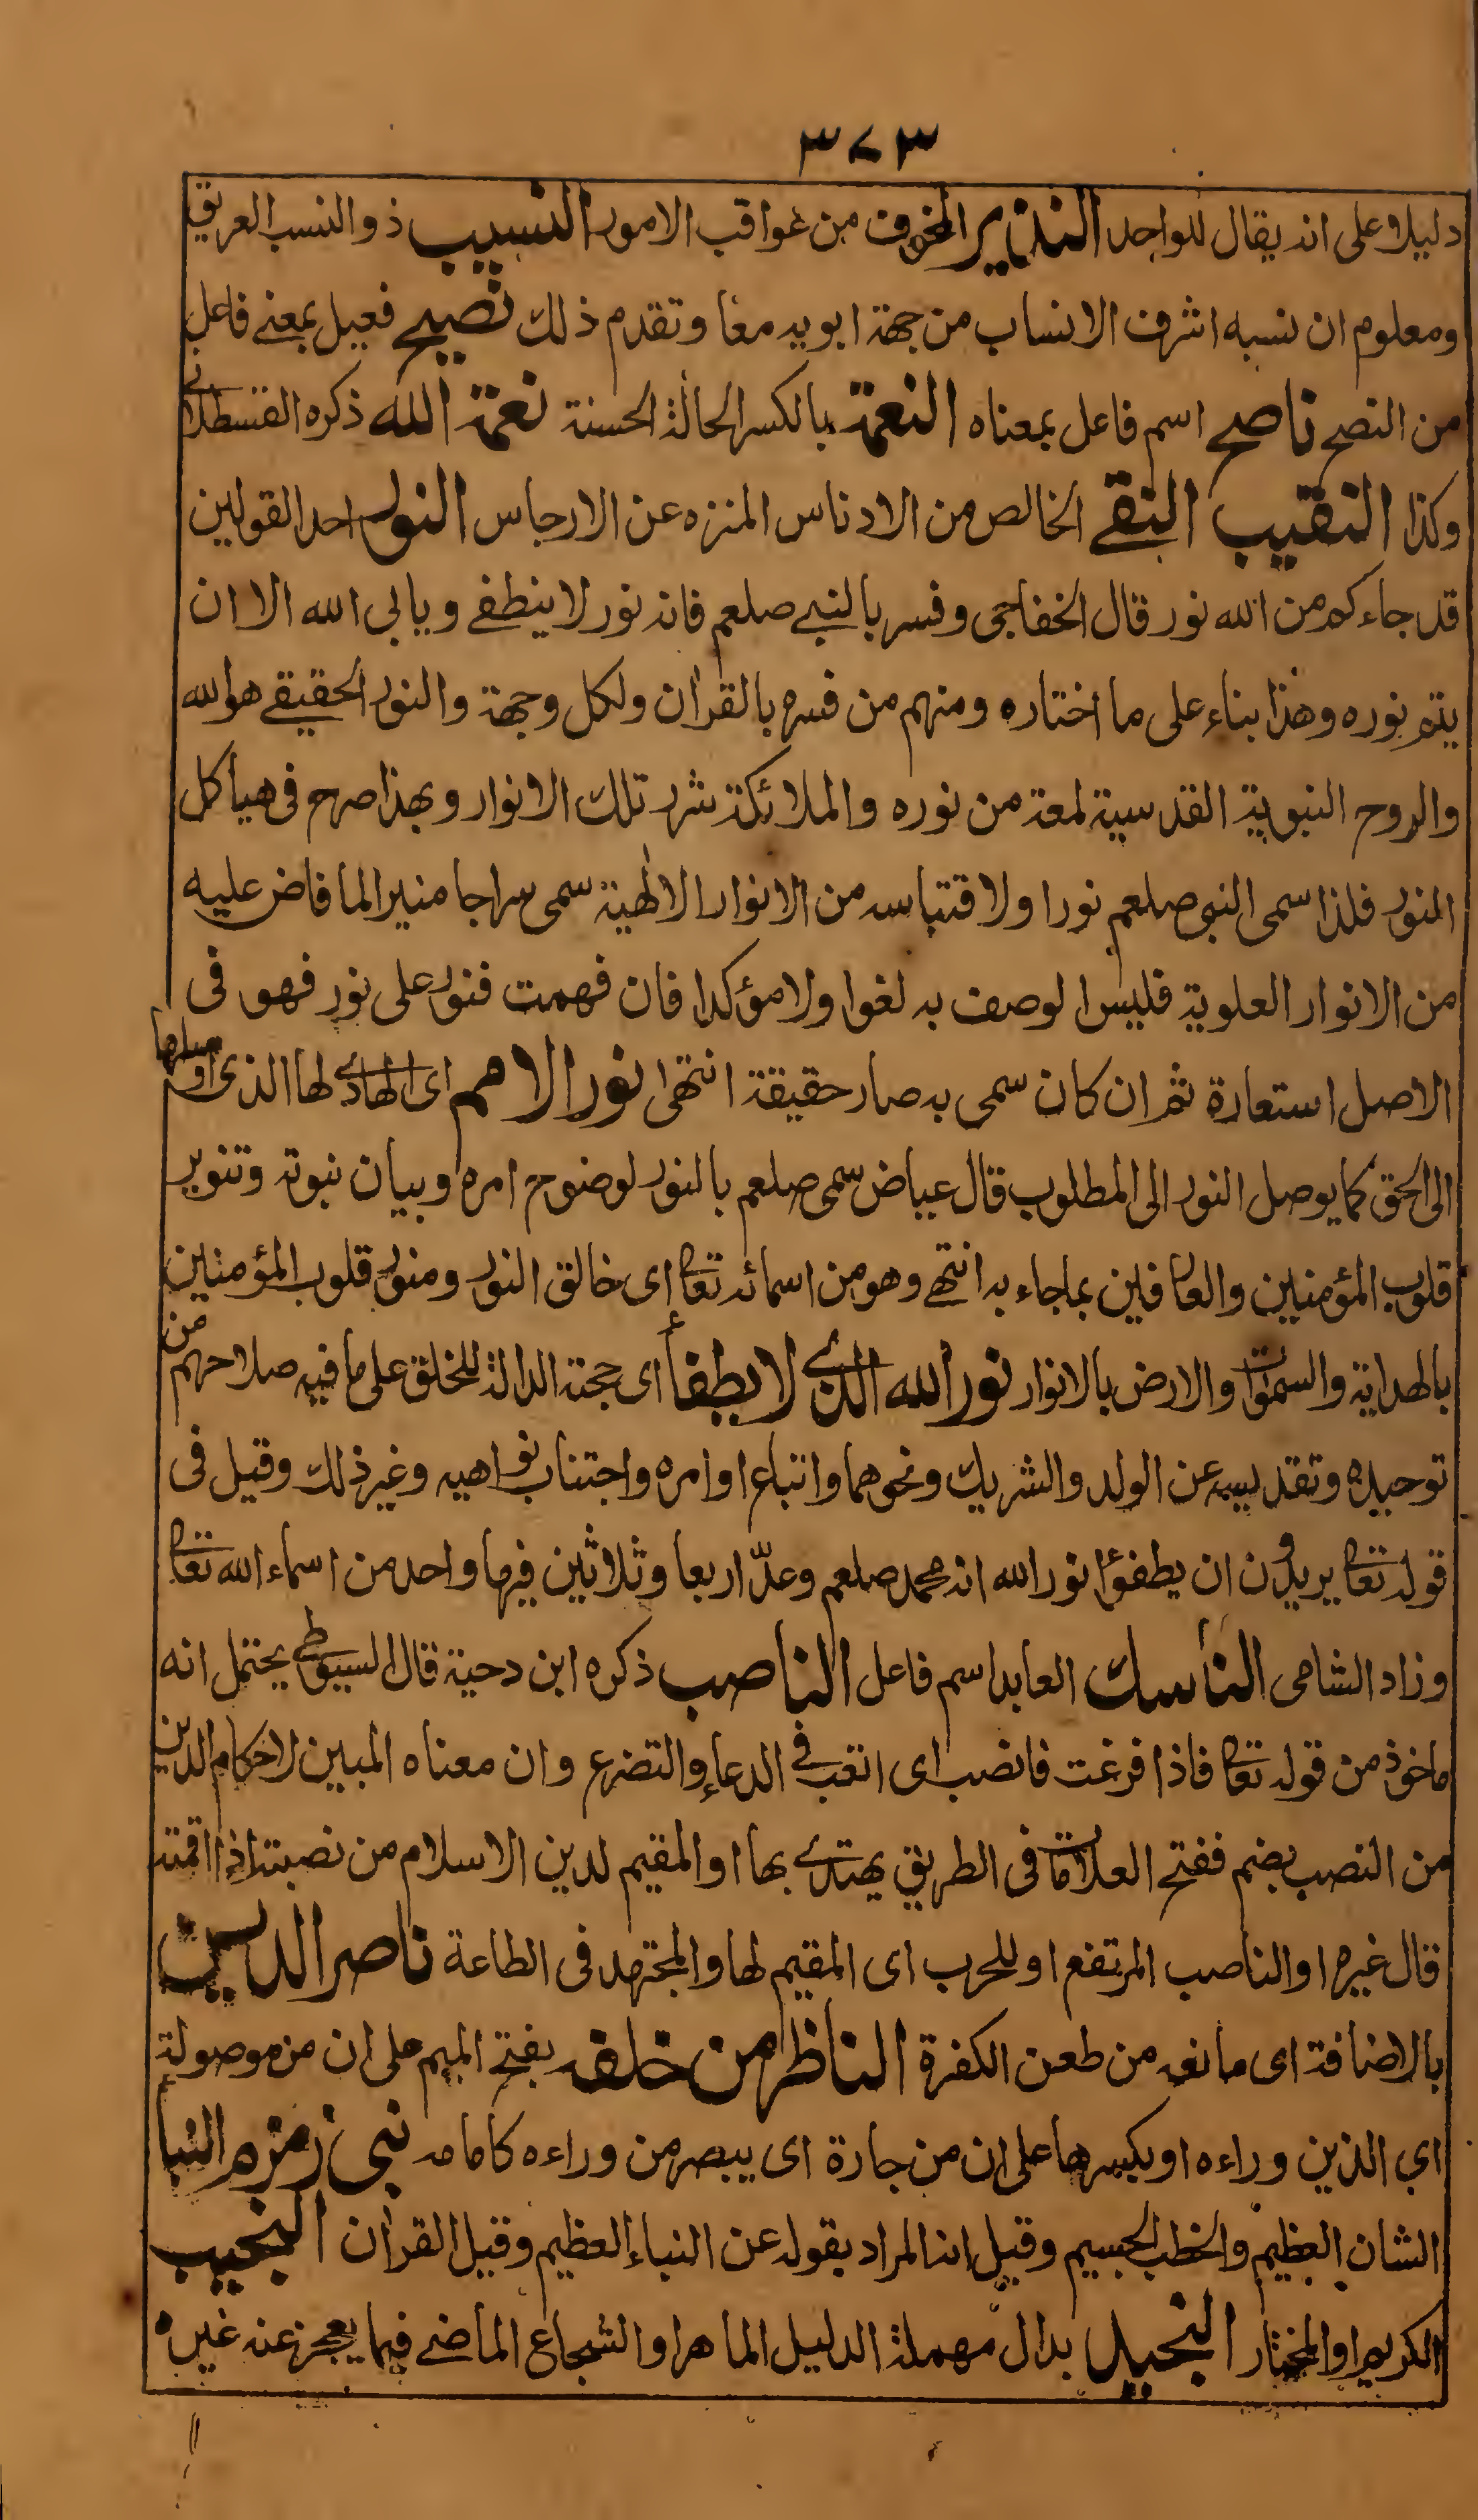 ٣٧٣
دليلا وعلى انه يقال للواحد النذير المخوف من عواقب الامور النسيب ذو النسب العريق
ومعلوم ان نسبه اشرف الانساب من جهة ابويه معا وتقدم ذلك نصيح فعيل بمعنے فاعل
من النصح ناصح اسم فاعل بمعناه النعمة بالكسر الحالة الحسنة نعمة الله ذكره القسطلانے
وكذا النقيب النقے الخالص من الادناس المنزه عن الارجاس النور احد القولين
قد جاءكم من الله نور قال الخفاجى وفسر بالنبے صلعم فانه نور لا ينطفے ويابى الله الا ان
يتم نوره وهذا بناء على ما اختاره ومنهم من فسره بالقران ولكل وجهة والنور الحقيقے هو الله
والروح النبوية القدسية لمعة من نوره والملائكة شرر تلك الانوار وبهذا صرح فى هياكل
النور فلذا سمى النبى صلعم نورا ولاقتباسه من الانوار الالهية سمى سراجا منيرا لما فاض عليه
من الانوار العلوية فليس الوصف به لغوا ولا مؤكدا فان فهمت فنور على نور فهو فى
الاصل استعارة ثم ان كان سمى به صار حقيقة انتهى نور الامم اى الهادے لها الذى اوصلها
الى الحق كما يوصل النور الى المطلوب قال عياض سمى صلعم بالنور لوضوح امره وبيان نبوته وتنوير
قلوب المؤمنين والعارفين بما جاء به انتهے وهو من اسمائه تعا اى خالق النور ومنور قلوب المؤمنين
بالهداية والسموات والارض بالانوار نور الله الذے لا يطفأ اى حجته الدالة للخلق على ما فيه صلاحهم من
توحيده وتقديسه عن الولد والشريك ونحوهما واتباع اوامره واجتناب نواهيه وغير ذلك وقيل فى
قوله تعا يريدون ان يطفؤا نور الله انه محمد صلعم وعدّ اربعا وثلاثين فيها واحد من اسماء الله تعا
وزاد الشامى الناسك العابد اسم فاعل الناصب ذكره ابن دحية قال السيوطے يحتمل انه
ماخوذ من قوله تعا فاذا فرغت فانصب اى اتعب فى الدعاء والتضرع وان معناه المبين لاحكام الدين
من النصب بضم ففتح العلامات فى الطريق يهتدے بها او المقيم لدين الاسلام من نصبته اذا اقمته
قال غيره او الناصب المرتفع او للحرب اى المقيم لها والمجتهد فى الطاعة ناصر الدين
بالاضافة اى مانعه من طعن الكفرة الناظر من خلفه بفتح الميم على ان من موصولة
اي الذين وراءه او بكسرها على ان من جارة اى يبصر من وراءه كامامه نبى زمزم النبأ
الشان العظيم والخطب الجسيم وقيل انه المراد بقوله عن النباء العظيم وقيل القران النجيب
الكريم او المختار النجيد بدال مهملة الدليل الماهر او الشجاع الماضے فيما يعجز عنه غيره